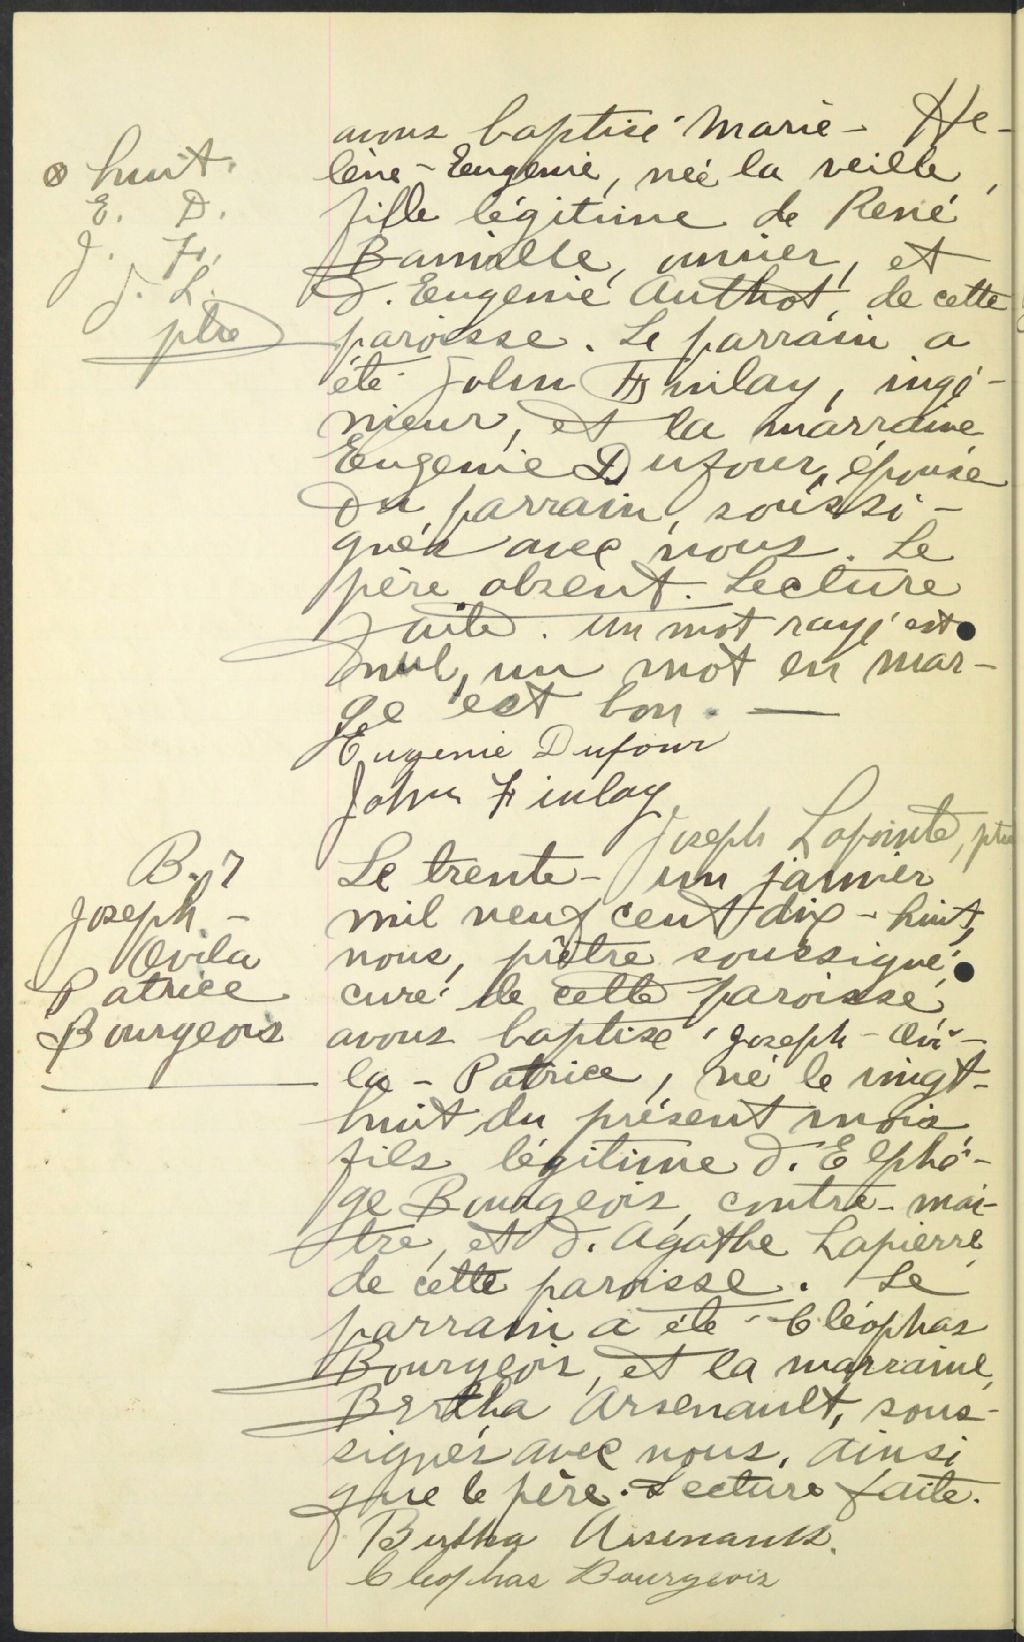 ⊗ huit.
E. D.
J. F.
J. L.
ptre
avons baptisé Marie-Hé-
lène-Eugénie, née la veille,
fille légitime de René
, et
d'Eugénie Authot, de cette
paroisse. Le parrain a
été John Finlay, ingé-
nieur, et la marraine
Eugénie Dufour, épouse
du parrain, soussi-
gnés avec nous. Le
père absent. Lecture
faite. Un mot rayé est
nul, un mot en mar-
ge est bon. —
Eugenie Dufour
John Finlay
Joseph Lapointe, ptre
B. 7
Joseph-
Ovila
Patrice
Bourgeois
Le trente-un janvier
mil neuf cent dix-huit,
nous, prêtre soussigné,
curé de cette paroisse,
avons baptisé Joseph-Ovi-
la-Patrice, né le vingt-
huit du présent mois
fils légitime d'Elphè-
ge Bourgeois, contre-maî-
tre, et d'Agathe Lapierre,
de cette paroisse. Le
parrain a été Cléophas
Bourgeois, et la marraine,
Bertha Arsenault, sous-
signés avec nous, ainsi
que le père. Lecture faite.
Bertha Arsenault.
Cleophas Bourgeois